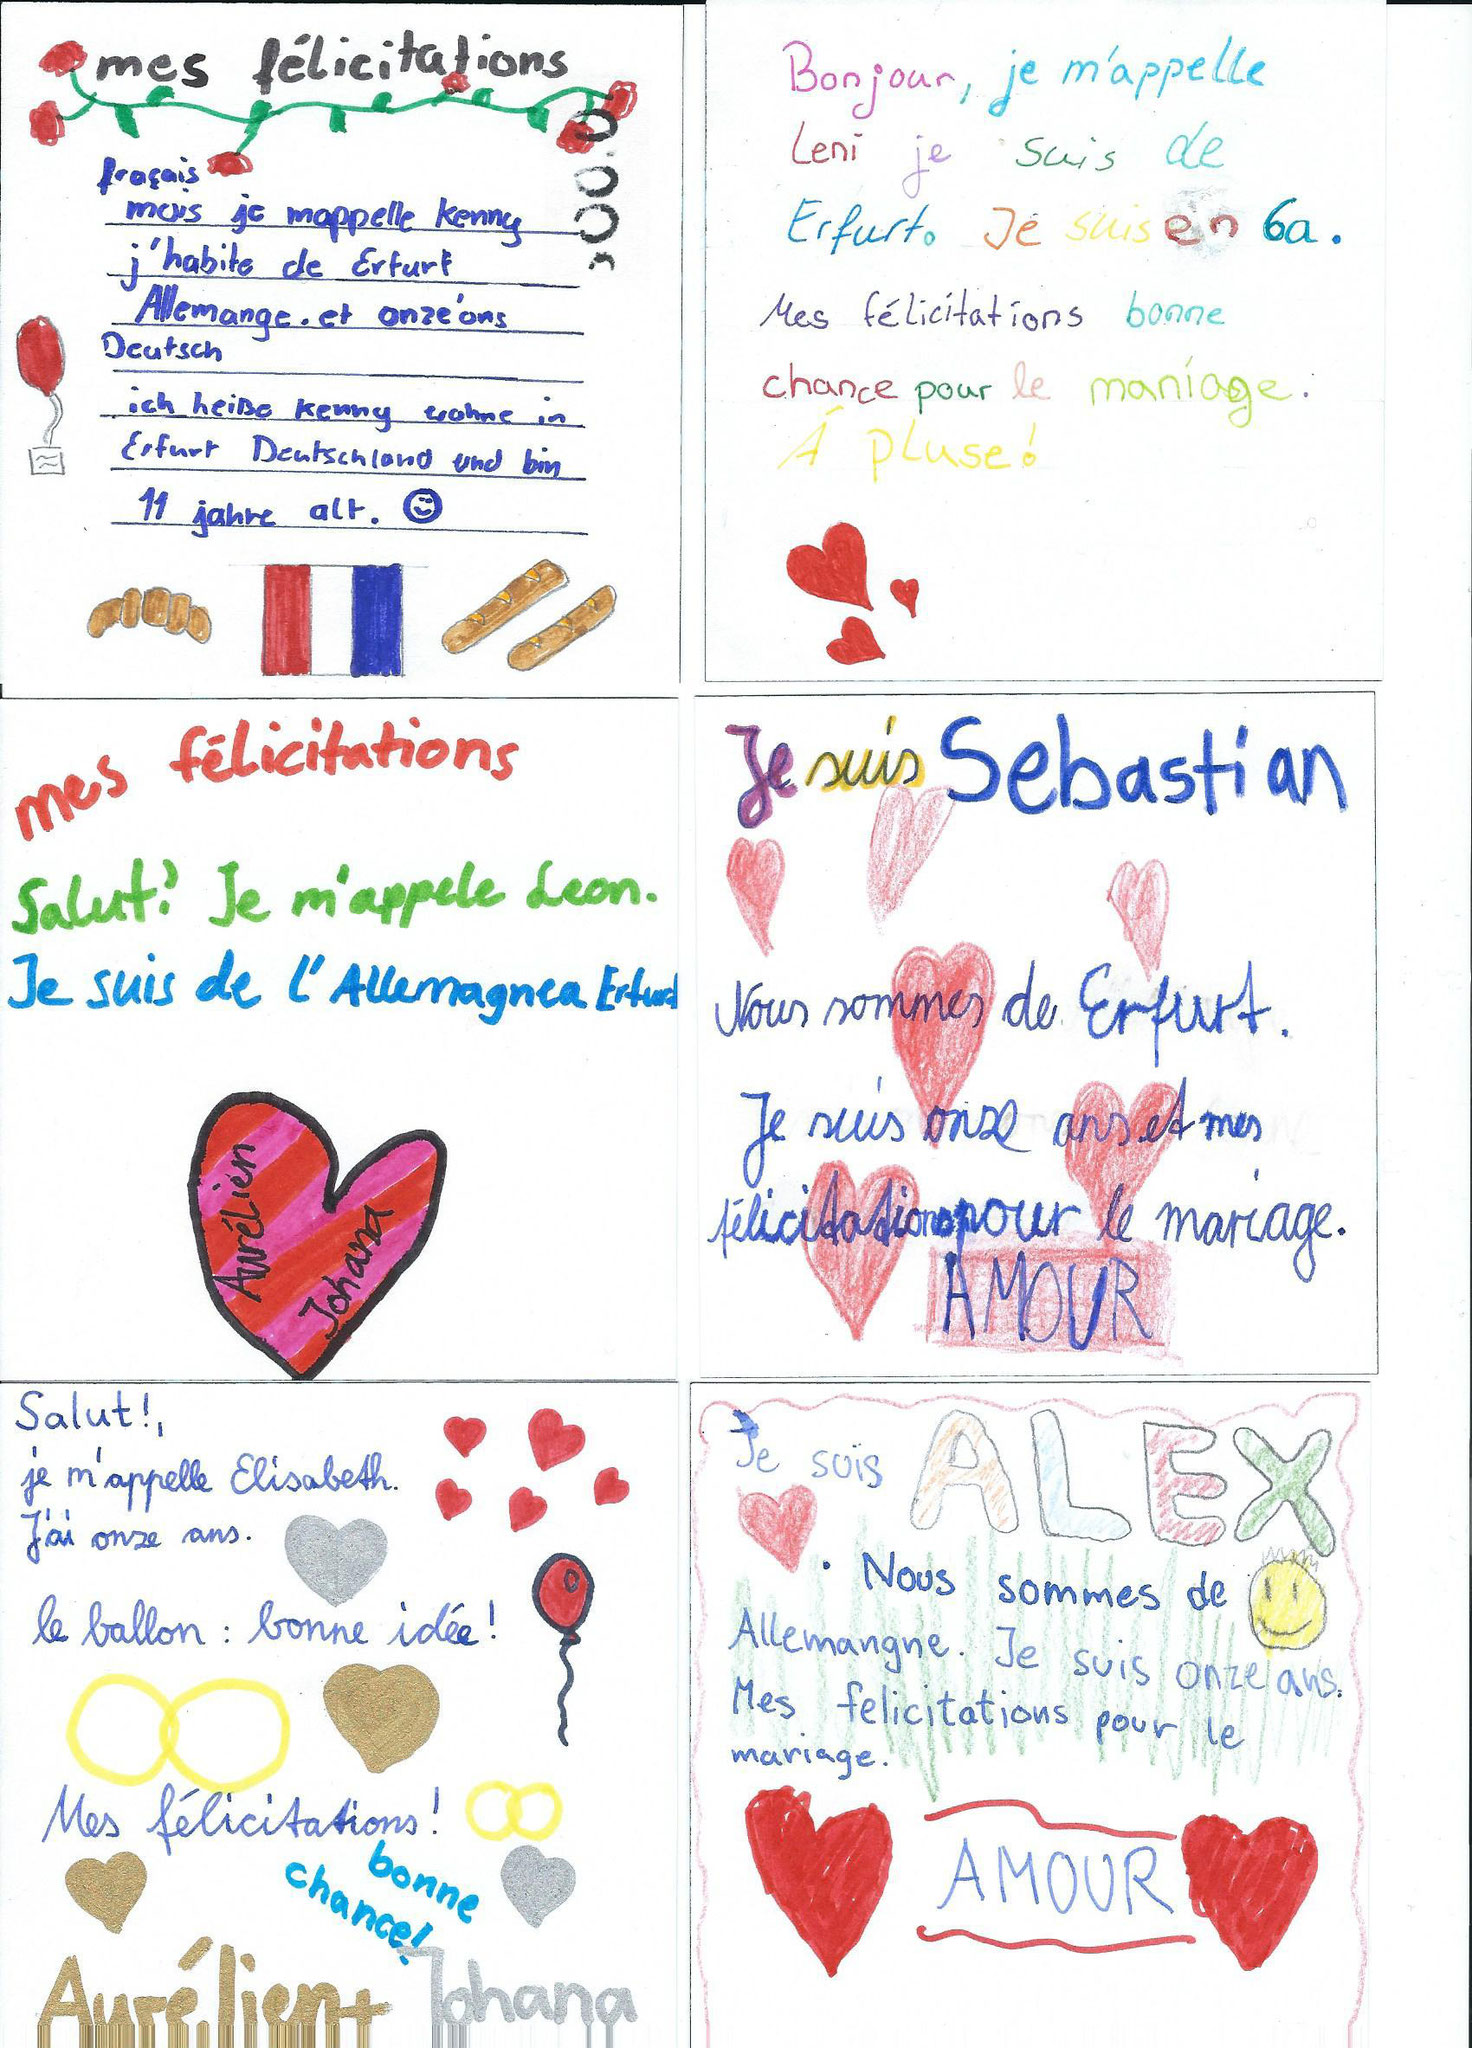 mes félicitations
fraçais
mois je mappelle Kenny
j'habite de Erfurt
Allemange. et onze'ons
Deutsch
ich heiße Kenny wohne in
Erfurt Deutschland und bin
11 jahre alt.
Bonjour, je m'appelle
Leni je suis de
Erfurt. Je suis en 6a.
Mes félicitations bonne
chance pour le maniage.
Á pluse!
mes félicitations
Salut! Je m'appele Leon.
Je suis de l'Allemagnea Erfurt
Aurélien
Johana
Je suis Sebastian
Nous sommes de Erfurt.
Je suis onze ans et mes
félicitations pour le mariage.
AMOUR
Salut!,
je m'appelle Elisabeth.
J'ai onze ans.
le ballon : bonne idée!
Mes félicitations!
bonne
chance!
Aurélien + Johana
Je suis ALEX
. Nous sommes de
Allemangne. Je suis onze ans.
Mes felicitations pour le
mariage.
AMOUR